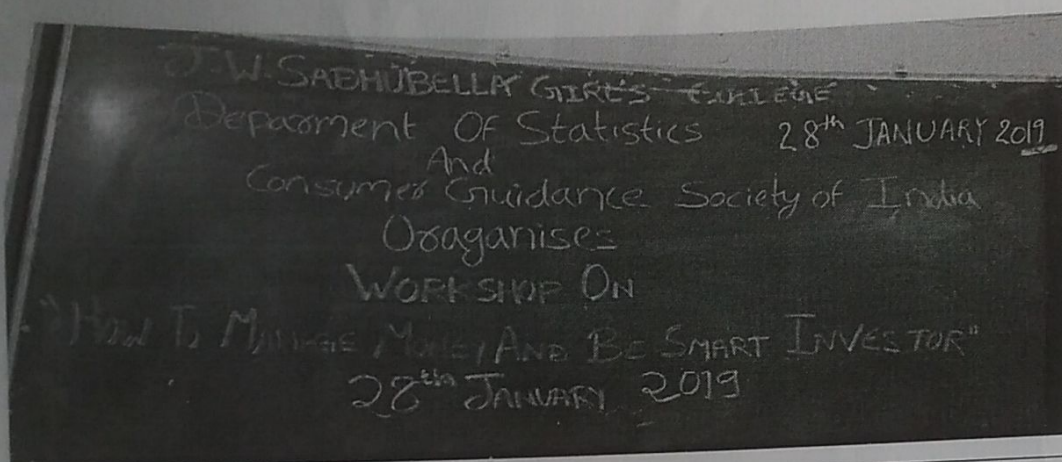 J.W. SADHUBELLA GIRL'S COLLEGE
Deparment Of Statistics
28th JANUARY 2019
And
Consumer Guidance Society of India
Oraganises
WORKSHOP ON
"HOW TO MANAGE MONEY AND BE SMART INVESTOR"
28th JANUARY 2019